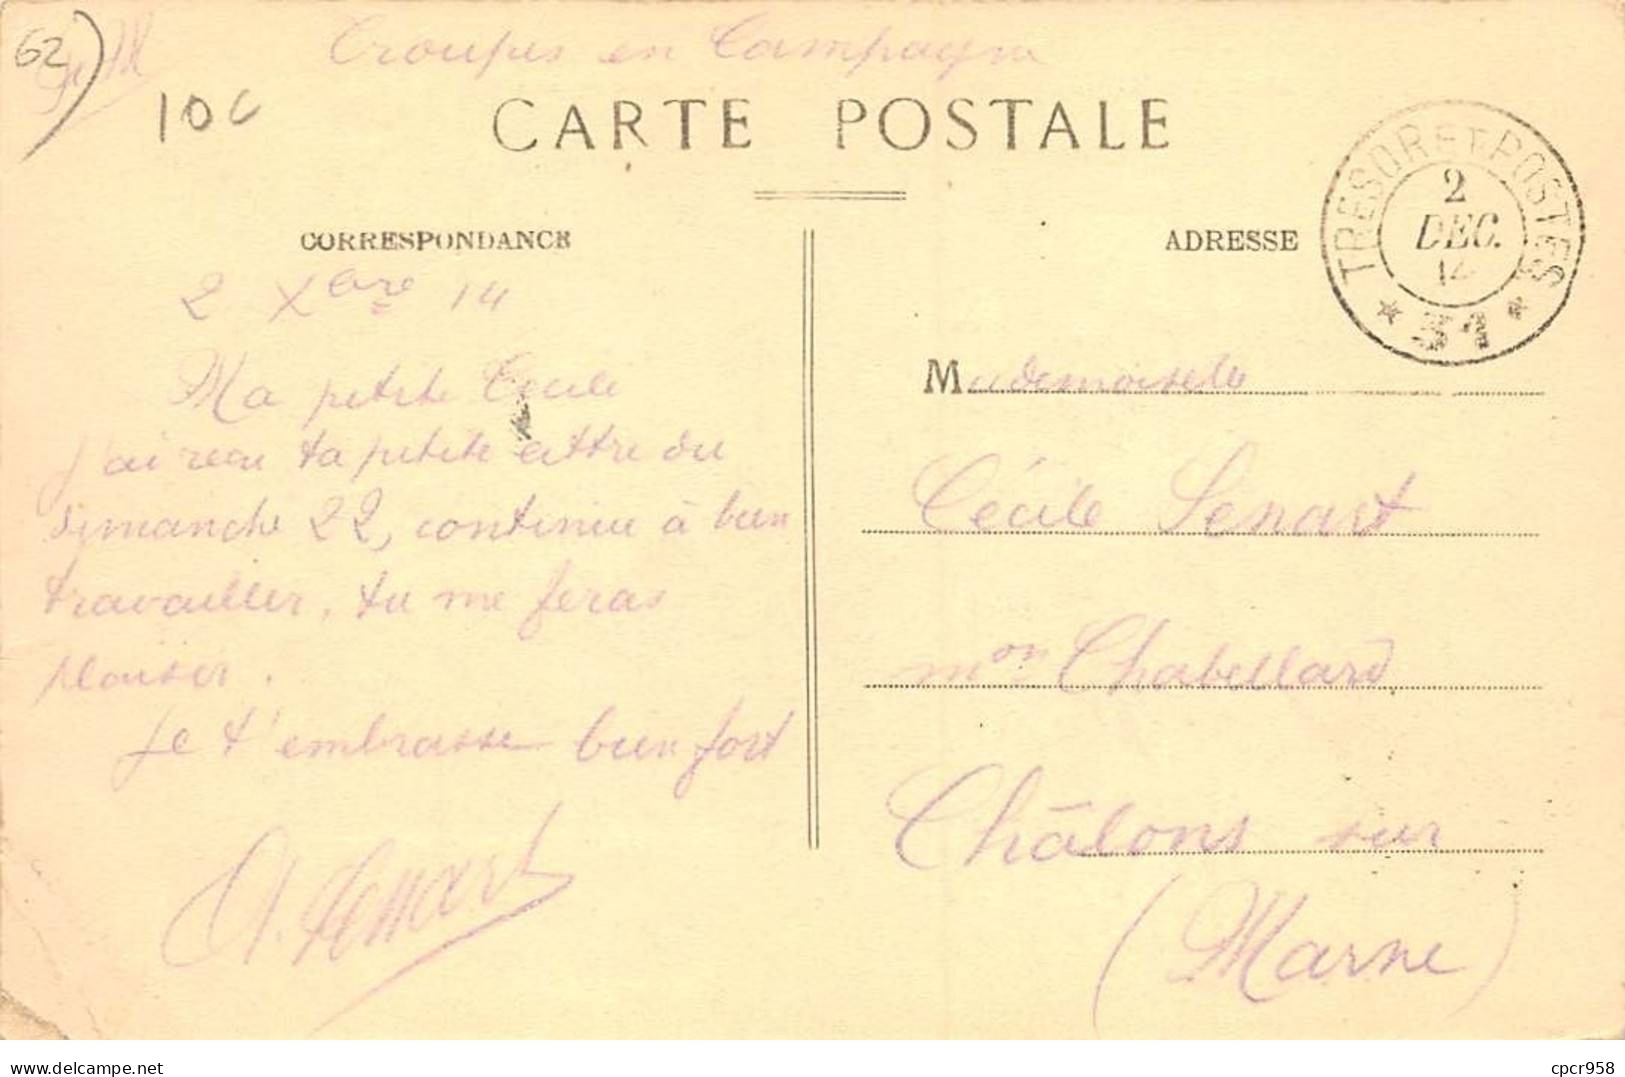 62)
Troupes en Campagne
10 c
CARTE POSTALE
TRESOR ET POSTES
2
DEC.
14
* 51 *
CORRESPONDANCE
ADRESSE
2 Xbre 14
Ma petite Cécile
J'ai recu ta petite lettre du
dimanche 22, continue à bien
travailler, tu me feras
plaisir.
Je t'embrasse bien fort
A. Senart
Mademoiselle
Cécile Senart
mon Chabellard
Châlons sur
(Marne)
delcampe.net
cpcr958